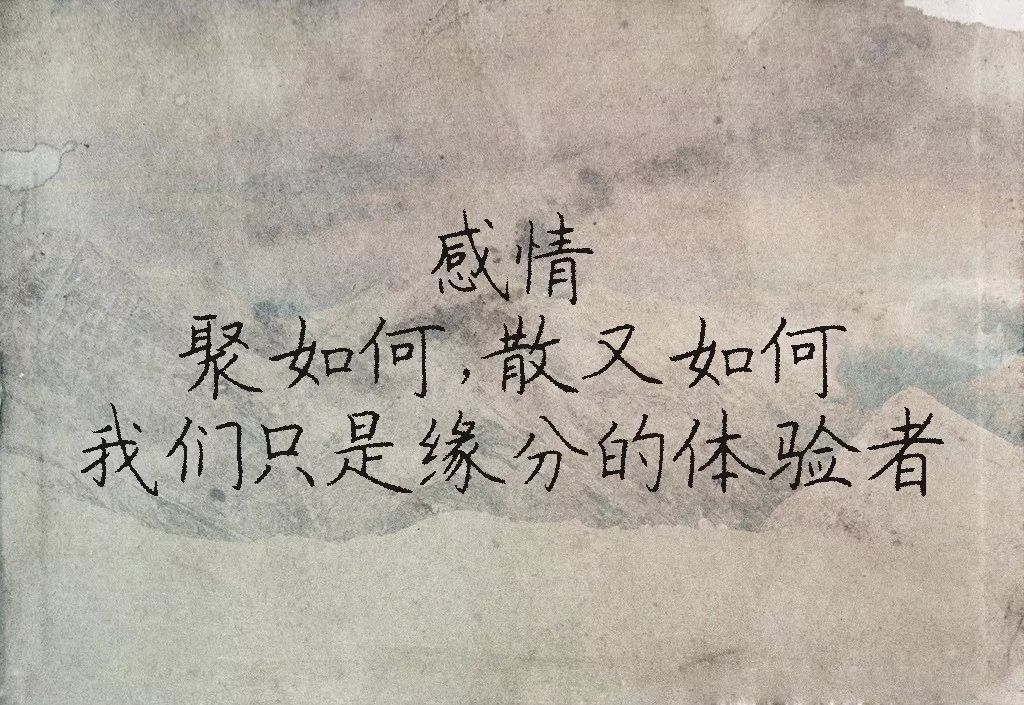 感情
聚如何,散又如何
我们只是缘分的体验者